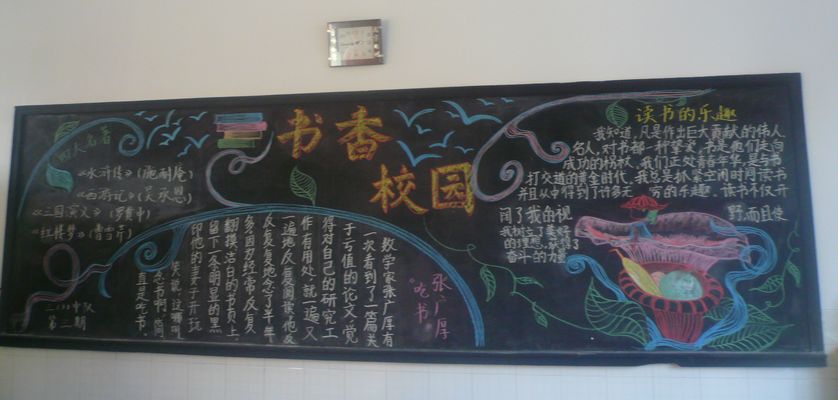 书香
校园
四大名著
《水浒传》(施耐庵)
《西游记》(吴承恩)
《三国演义》(罗贯中)
《红楼梦》(曹雪芹)
中队
第二期
张广厚
“吃书”
数学家张广厚有
一次看到了一篇关
于亏值的论文,觉
得对自己的研究工
作有用处,就一遍又
一遍地反复阅读。他反
反复复地念了半年
多。因为经常反复
翻摸,洁白的书页上
留下一条明显的黑
印。他的妻子开玩
笑说,这哪叫
念书啊,简
直是吃书。
读书的乐趣
我知道,凡是作出巨大贡献的伟人
名人,对书都一种挚爱,书是他们走向
成功的拐杖,我们正处青春年华,是与书
打交道的黄金时代,我总是抓紧空闲时间读书
并且从中得到了许多无穷的乐趣,读书不仅开
阔了我的视野,而且使
我树立了美好
的理想,获得了
奋斗的力量